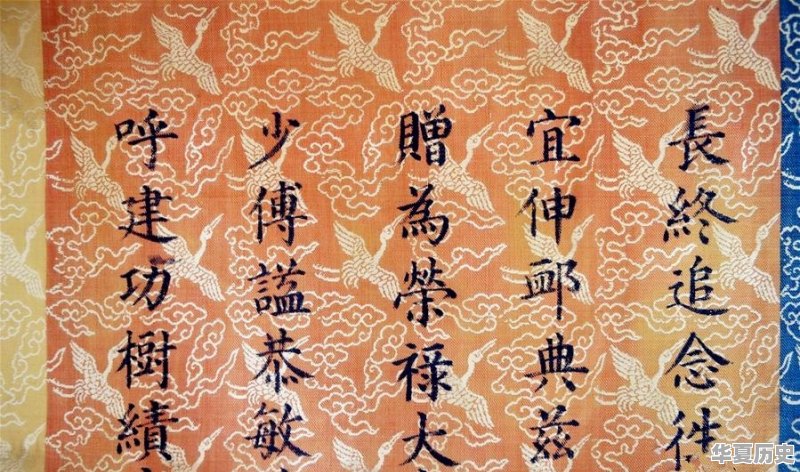 長終追念徃
宜伸卹典茲
贈為榮禄大
少傅謚恭敏
呼建功樹績
华夏历史